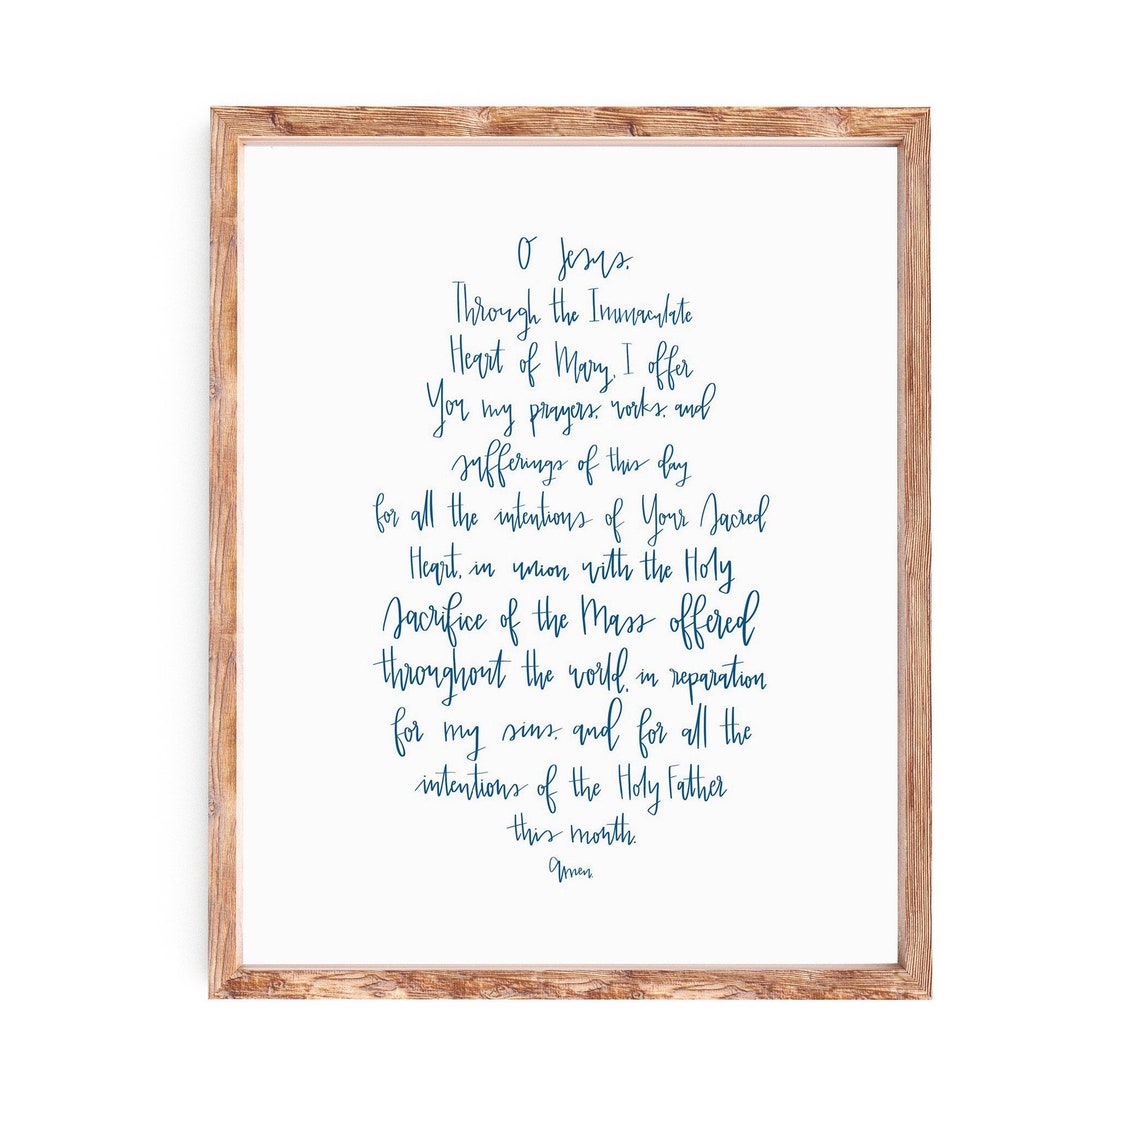 O Jesus,
Through the Immaculate
Heart of Mary, I offer
You my prayers, works, and
sufferings of this day
for all the intentions of Your Sacred
Heart, in union with the Holy
Sacrifice of the Mass offered
throughout the world, in reparation
for my sins, and for all the
intentions of the Holy Father
this month.
Amen.